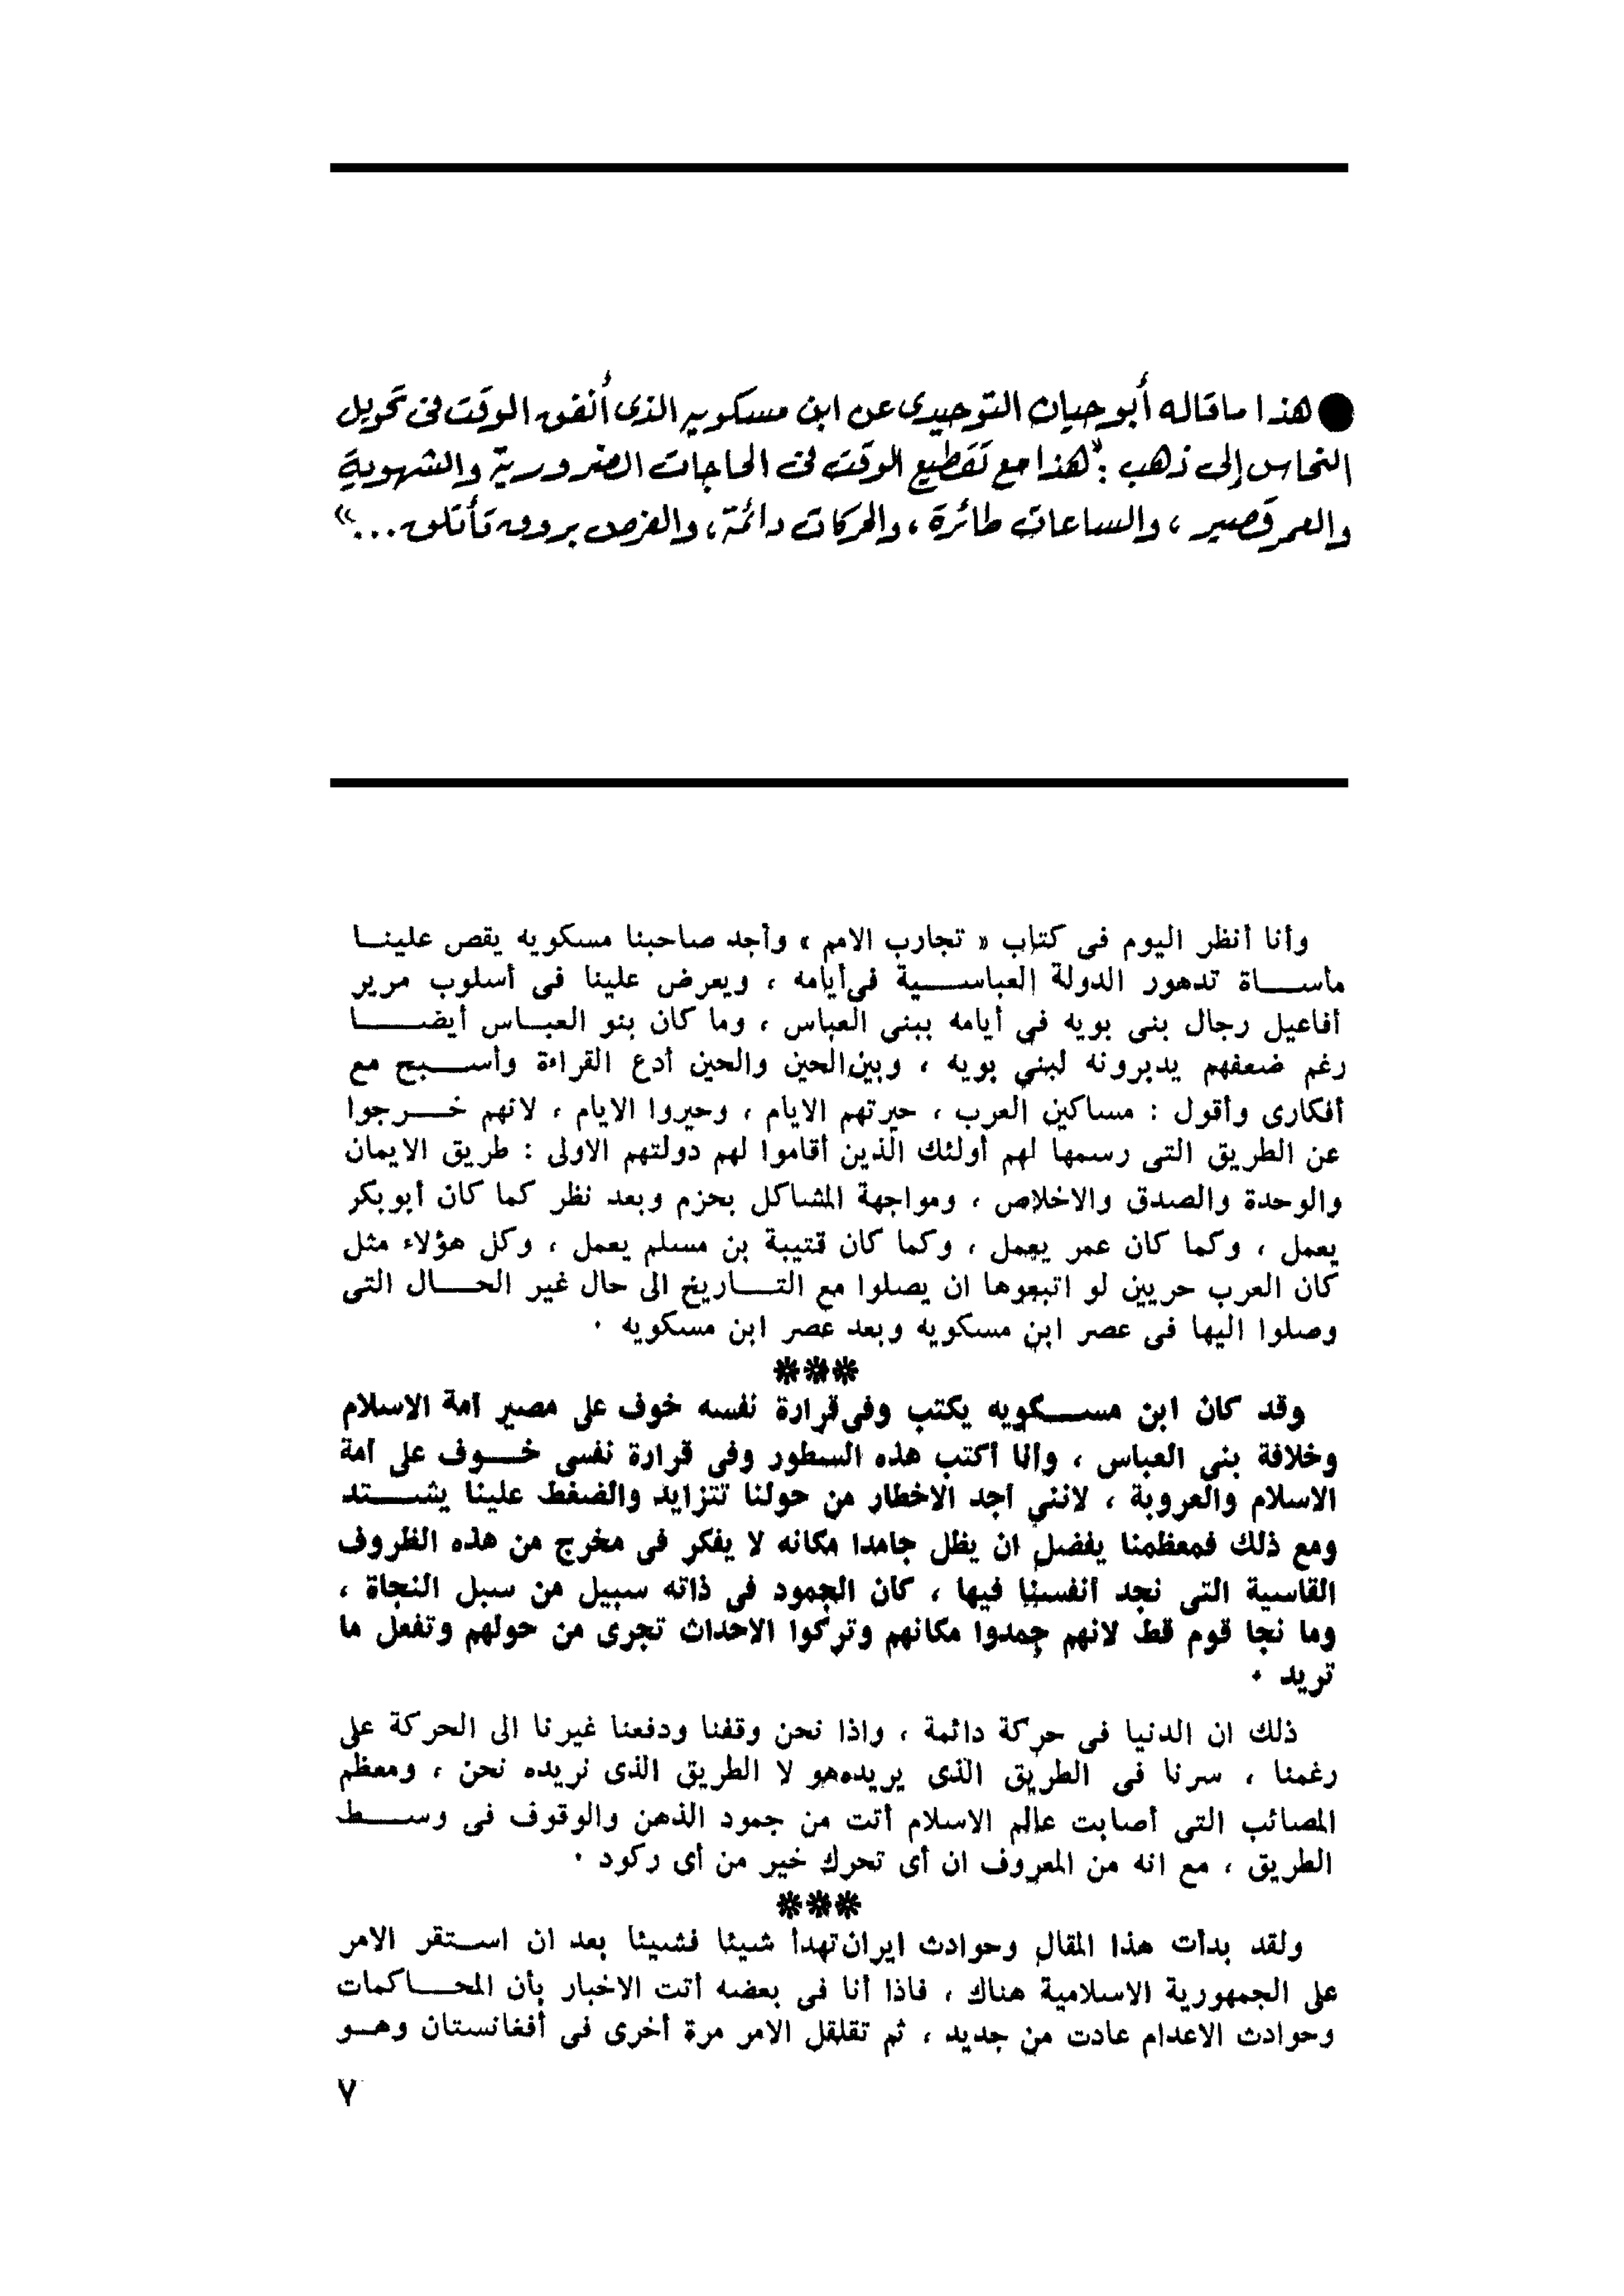 ● هذا ما قاله أبو حيان التوحيدى عن ابن مسكويه الذى أنفق الوقت فى تحويل
النحاس إلى ذهب : « هذا مع تقطيع الوقت فى الحاجات الضرورية والشهوية
والعمر قصير ، والساعات طائرة ، والحركات دائمة ، والفرص بروق تأتلق ... »
وأنا أنظر اليوم فى كتاب « تجارب الامم » وأجد صاحبنا مسكويه يقص علينا
مأساة تدهور الدولة العباسية فى أيامه ، ويعرض علينا فى أسلوب مرير
أفاعيل رجال بنى بويه فى أيامه ببنى العباس ، وما كان بنو العباس أيضا
رغم ضعفهم يدبرونه لبنى بويه ، وبين الحين والحين أدع القراءة وأسبح مع
أفكارى وأقول : مساكين العرب ، حيرتهم الايام ، وحيروا الايام ، لانهم خرجوا
عن الطريق التى رسمها لهم أولئك الذين أقاموا لهم دولتهم الاولى : طريق الايمان
والوحدة والصدق والاخلاص ، ومواجهة المشاكل بحزم وبعد نظر كما كان أبو بكر
يعمل ، وكما كان عمر يعمل ، وكما كان قتيبة بن مسلم يعمل ، وكل هؤلاء مثل
كان العرب حريين لو اتبعوها ان يصلوا مع التاريخ الى حال غير الحال التى
وصلوا اليها فى عصر ابن مسكويه وبعد عصر ابن مسكويه ٠
***
وقد كان ابن مسكويه يكتب وفى قرارة نفسه خوف على مصير أمة الاسلام
وخلافة بنى العباس ، وأنا أكتب هذه السطور وفى قرارة نفسى خوف على أمة
الاسلام والعروبة ، لاننى أجد الاخطار من حولنا تتزايد والضغط علينا يشتد
ومع ذلك فمعظمنا يفضل ان يظل جامدا مكانه لا يفكر فى مخرج من هذه الظروف
القاسية التى نجد أنفسنا فيها ، كان الجمود فى ذاته سبيل من سبل النجاة ،
وما نجا قوم قط لانهم جمدوا مكانهم وتركوا الاحداث تجرى من حولهم وتفعل ما
تريد ٠
ذلك ان الدنيا فى حركة دائمة ، واذا نحن وقفنا ودفعنا غيرنا الى الحركة على
رغمنا ، سرنا فى الطريق الذى يريده هو لا الطريق الذى نريده نحن ، ومعظم
المصائب التى أصابت عالم الاسلام أتت من جمود الذهن والوقوف فى وسط
الطريق ، مع انه من المعروف ان أى تحرك خير من أى ركود ٠
***
ولقد بدأت هذا المقال وحوادث ايران تهدأ شيئا فشيئا بعد ان استقر الامر
على الجمهورية الاسلامية هناك ، فاذا أنا فى بعضه أتت الاخبار بأن المحاكمات
وحوادث الاعدام عادت من جديد ، ثم تقلقل الامر مرة أخرى فى أفغانستان وهو
٧